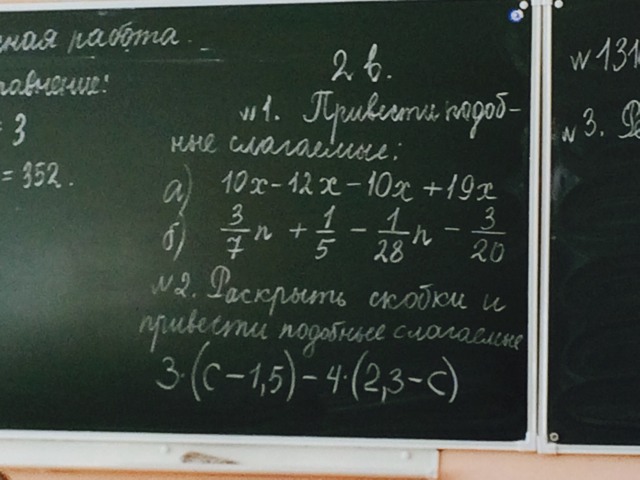 работа.
= 3
= 352.
2 в.
№1. Привести подоб-
ные слагаемые:
а) 10x-12x-10x+19x
б) 3/7 n + 1/5 - 1/28 n - 3/20
№2. Раскрыть скобки и
привести подобные слагаемые
3·(c-1,5)-4·(2,3-c)
№ 131
№ 3.